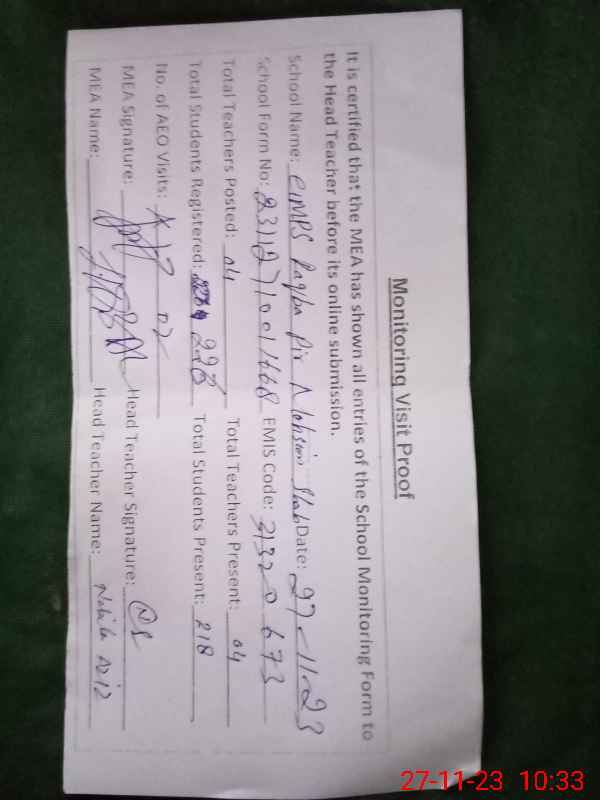 Monitoring Visit Proof
It is certified that the MEA has shown all entries of the School Monitoring Form to
the Head Teacher before its online submission.
School Name: GMPS Ragba Pir Mohsin Shah Date: 27-11-23
School Form No: EMIS Code: 31320673
Total Teachers Posted: 04 Total Teachers Present: 04
Total Students Registered: 228 Total Students Present: 218
No. of AEO Visits: 02
MEA Signature: Head Teacher Signature:
MEA Name: Head Teacher Name: Nabila Aziz
27-11-23 10:33